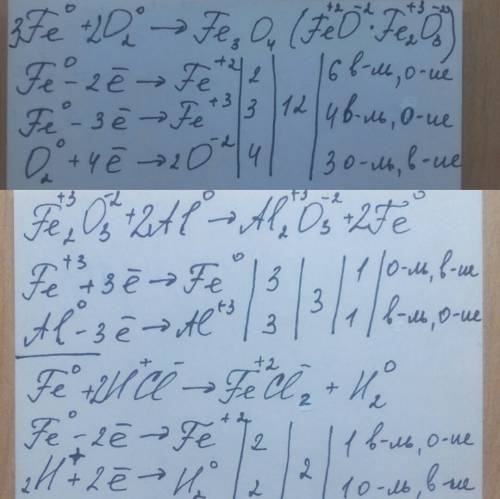 3Fe⁰ + 2O₂⁰ → Fe₃O₄ (Fe⁺²O⁻²·Fe₂⁺³O₃⁻²)
Fe⁰ - 2ē → Fe⁺² | 2 | | 6 в-ль, о-ие
Fe⁰ - 3ē → Fe⁺³ | 3 | 12 | 4 в-ль, о-ие
O₂⁰ + 4ē → 2O⁻² | 4 | | 3 о-ль, в-ие
Fe₂⁺³O₃⁻² + 2Al⁰ → Al₂⁺³O₃⁻² + 2Fe⁰
Fe⁺³ + 3ē → Fe⁰ | 3 | | 1 | о-ль, в-ие
Al⁰ - 3ē → Al⁺³ | 3 | 3 | 1 | в-ль, о-ие
Fe⁰ + 2H⁺Cl⁻ → Fe⁺²Cl₂⁻ + H₂⁰
Fe⁰ - 2ē → Fe⁺² | 2 | | 1 в-ль, о-ие
2H⁺ + 2ē → H₂⁰ | 2 | 2 | 1 о-ль, в-ие